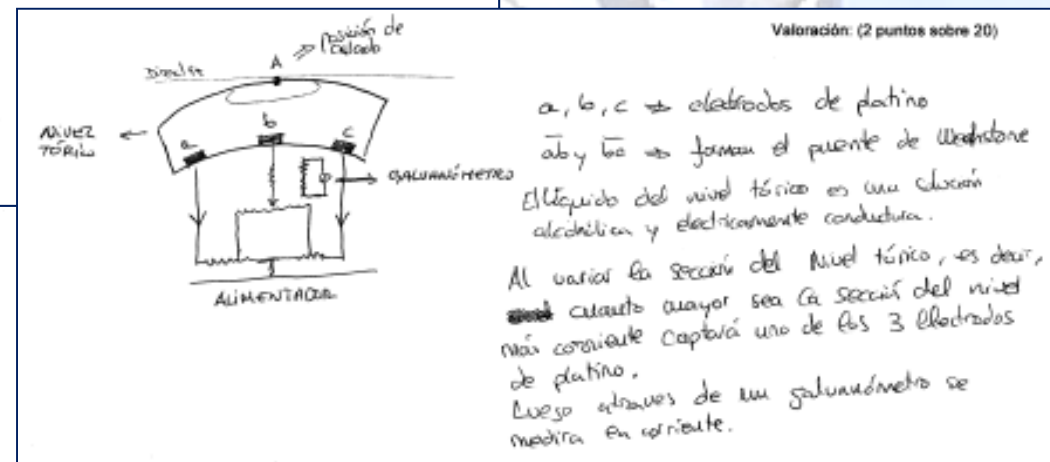 Valoración: (2 puntos sobre 20)
posición de
calado
A
Directriz
NIVEL
TÓRICO
a
b
c
GALVANÓMETRO
ALIMENTADOR
a, b, c ⇒ electrodos de platino
ab y bc ⇒ forman el puente de
El líquido del nivel tórico es una
alcohólica y electricamente conductora.
Al variar la sección del Nivel tórico, es decir,
cuanto mayor sea la sección del nivel
más corriente captará uno de los 3 Electrodos
de platino.
Luego através de un galvanómetro se
medira en corriente.